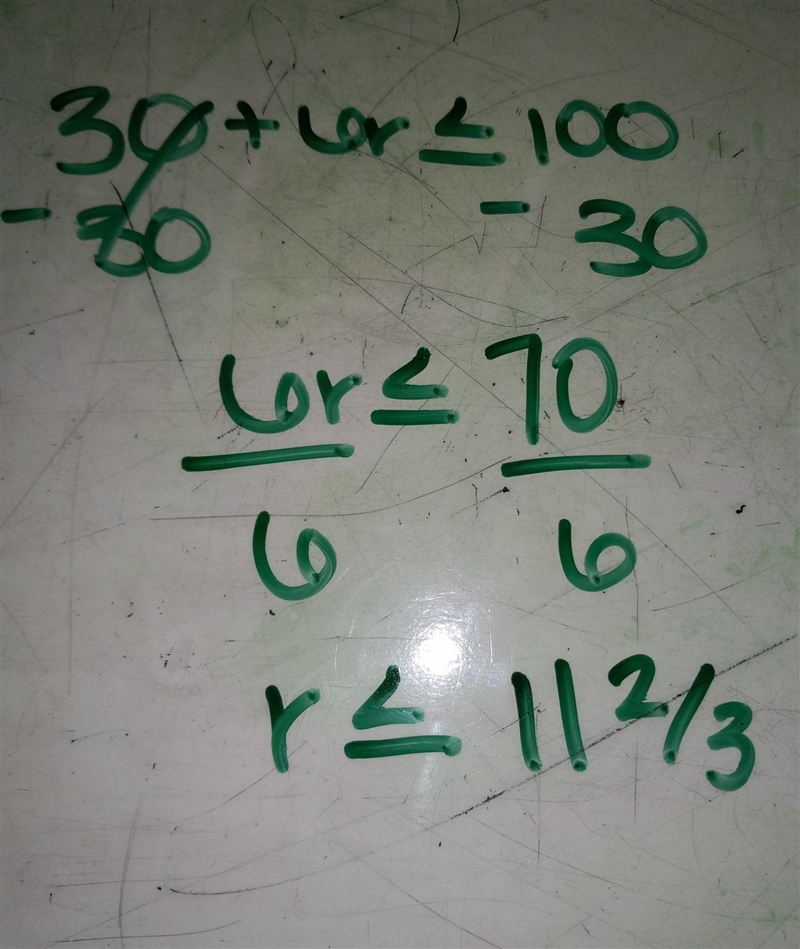 30 + 6r ≤ 100
- 30 - 30
6r ≤ 70
6 6
r ≤ 11 2/3